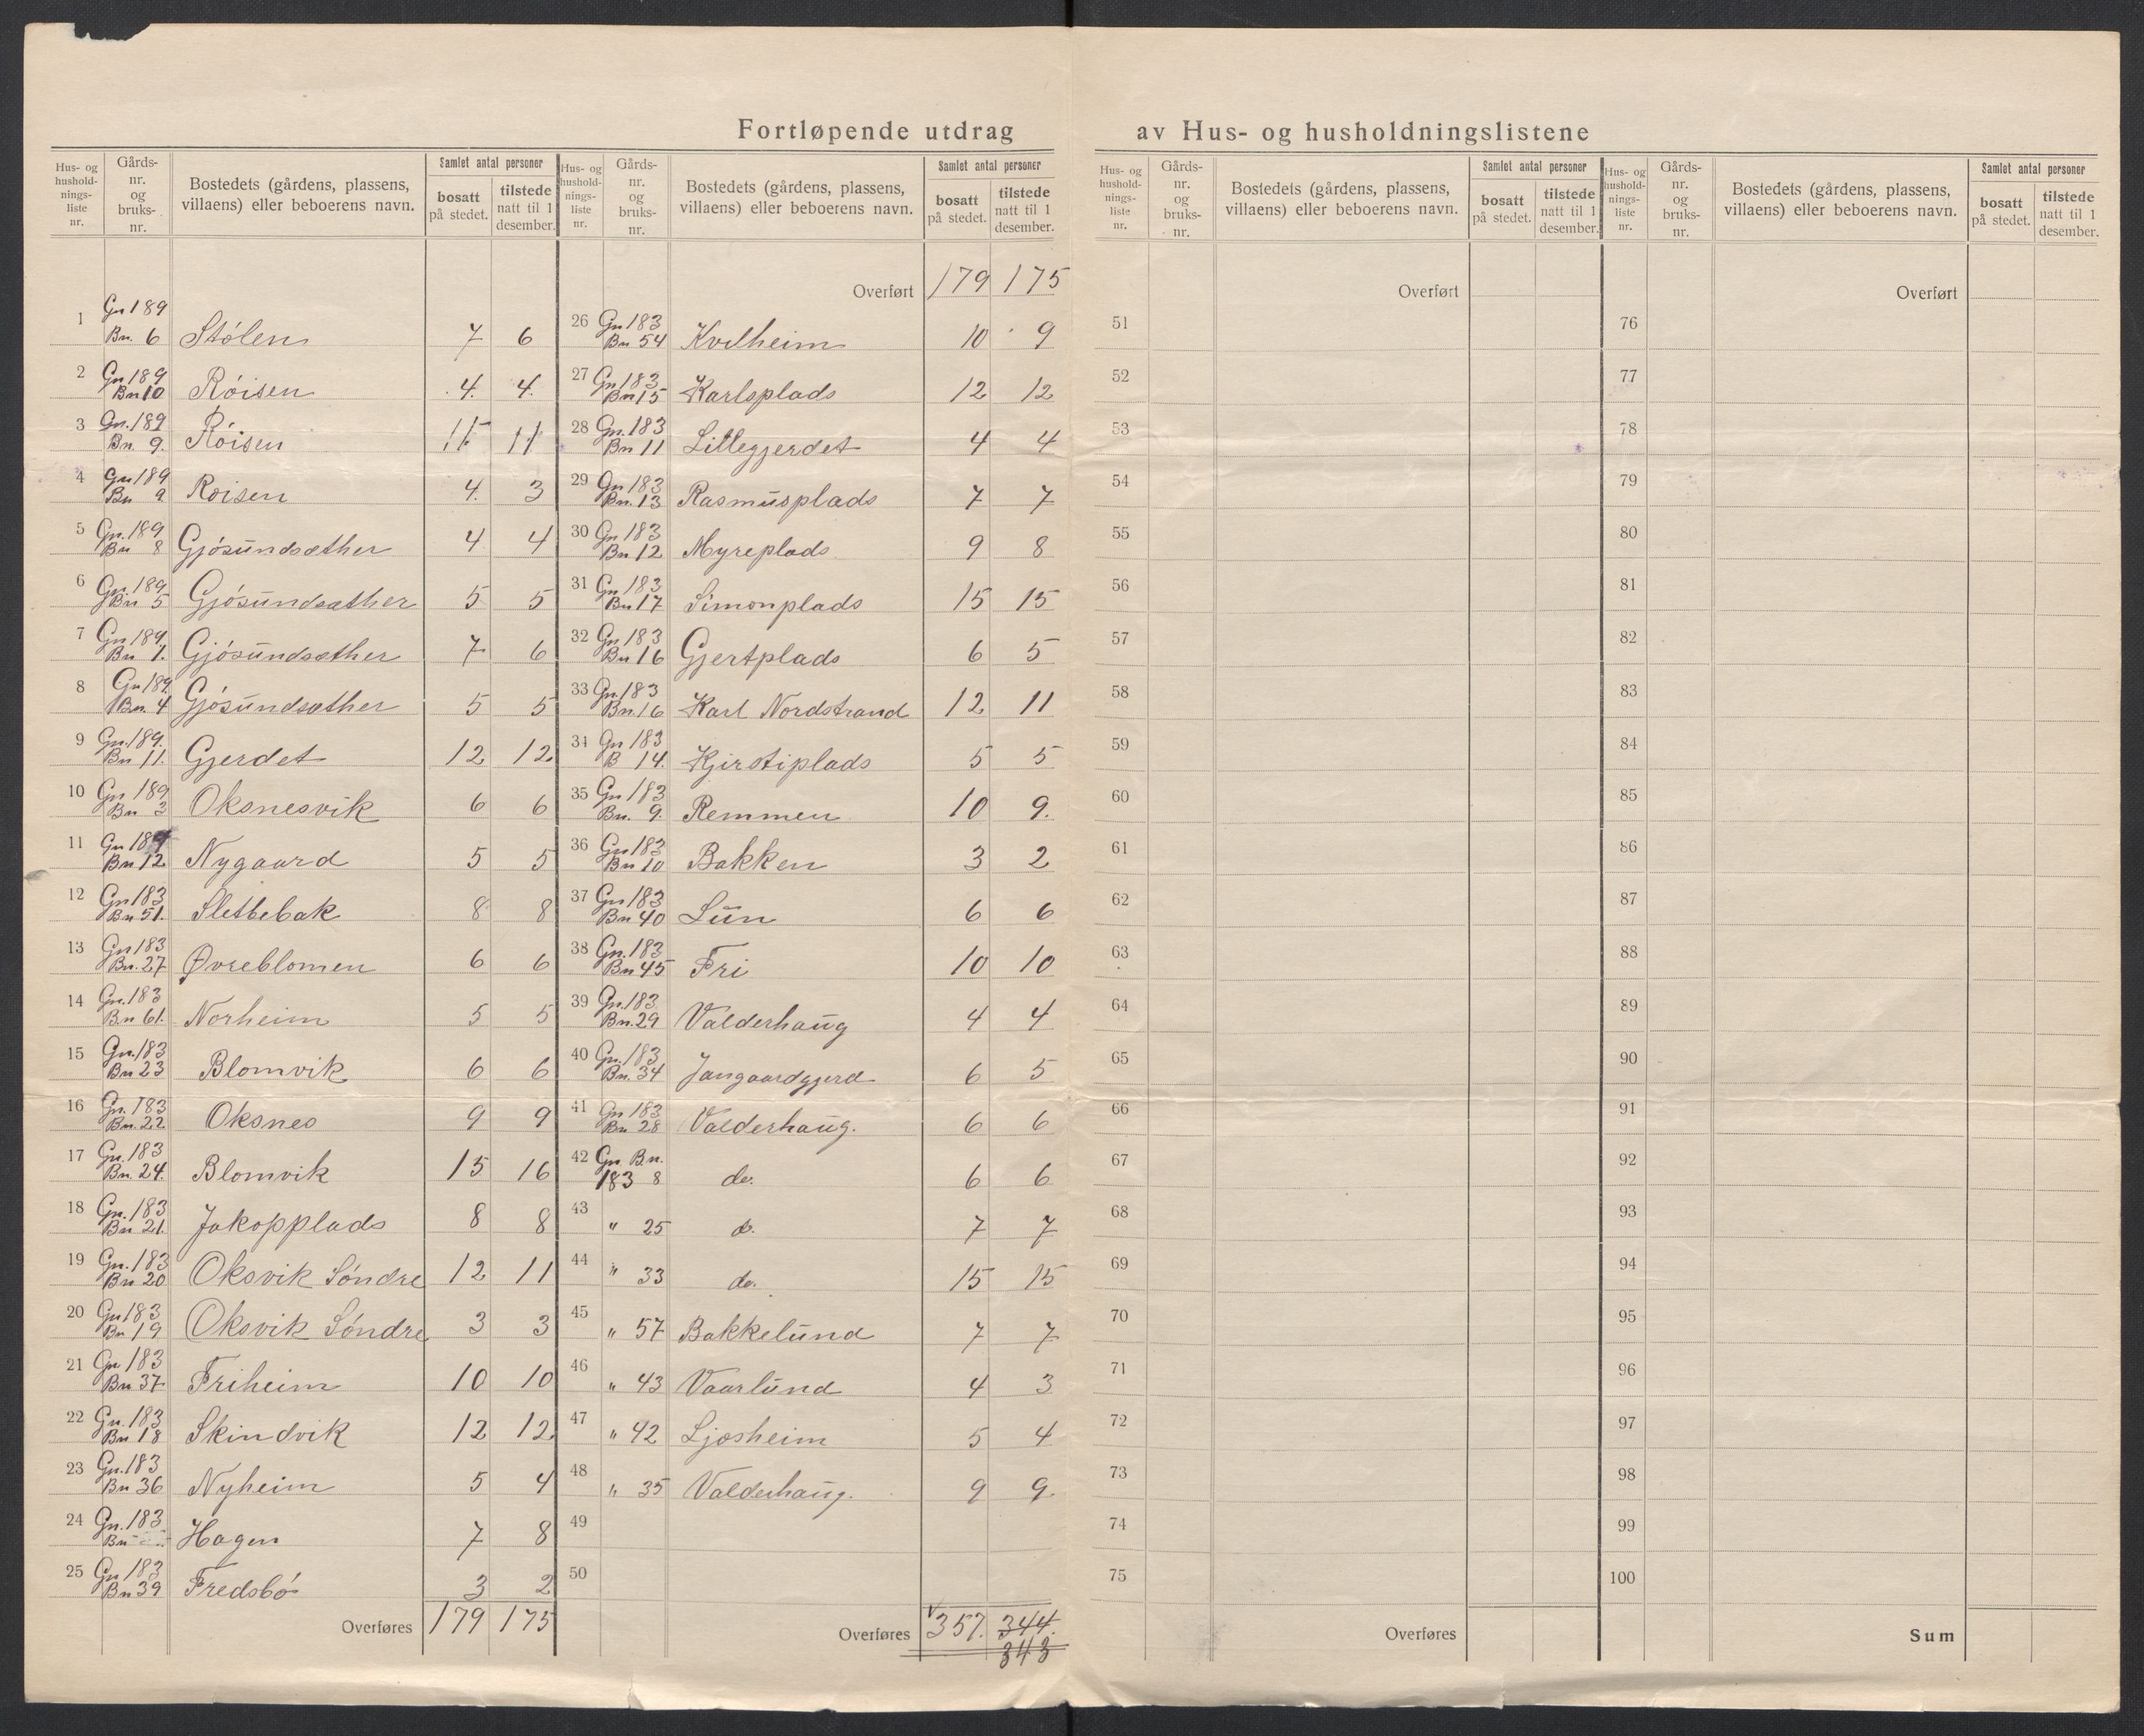 Fortløpende utdrag av Hus- og husholdningslistene
Hus- og husholdnings-liste nr. | Gårds-nr. og bruks-nr. | Bostedets (gårdens, plassens, villaens) eller beboerens navn. | Samlet antal personer | bosatt på stedet. | tilstede natt til 1 desember.
1 Gn 189 Bn. 6 Stølen 7 6
2 Gn 189 Bn 10 Röisen 4. 4.
3 Gn. 189 Bn. 9. Röisen 11 11
4 Gn 189 Bn 9 Roisen 4. 3
5 Gn. 189 Bn 8 Gjösundsæther 4 4
6 Gn. 189 Bn 5 Gjösundsæther 5 5
7 Gn 189 Bn 1. Gjösundsæther 7 6
8 Gn 189 Bn. 4 Gjösundsæther 5 5
9 Gn. 189. Bn 11. Gjerdet 12 12
10 Gn 189 Bn 3 Oksnesvik 6 6
11 Gn 189 Bn 12 Nygaard 5 5
12 Gn 183 Bn 51. Sletbebak 8 8
13 Gn 183 Bn. 27 Øvreblomen 6 6
14 Gn. 183 Bn 61. Norheim 5 5
15 Gn. 183 Bn 23 Blomvik 6 6
16 Gn. 183 Bn. 22 Oksnes 9 9
17 Gn. 183 Bn. 24. Blomvik 15 16
18 Gn. 183 Bn 21. Jakopplads 8 8
19 Gn. 183 Bn 20 Oksvik Söndre 12 11
20 Gn 183 Bn 19 Oksvik Söndre 3 3
21 Gn 183 Bn 37 Friheim 10 10
22 Gn. 183 Bn 18 Skindvik 12 12
23 Gn. 183 Bn 36 Nyheim 5 4
24 Gn. 183 Bn Hagen 7 8
25 Gn 183 Bn 39 Fredsbö 3 2
Overføres 179 175
Hus- og husholdnings-liste nr. | Gårds-nr. og bruks-nr. | Bostedets (gårdens, plassens, villaens) eller beboerens navn. | Samlet antal personer | bosatt på stedet. | tilstede natt til 1 desember.
Overført 179 175
26 Gn 183 Bn 54 Kvilheim 10 9
27 Gn 183 Bn 15 Karlsplads 12 12
28 Gn. 183 Bn 11 Lillegjerdet 4 4
29 Gn 183 Bn. 13 Rasmusplads 7 7
30 Gn 183 Bn 12 Myreplads 9 8
31 Gn 183 Bn 17 Simonplads 15 15
32 Gn 183 Bn 16 Gjertplads 6 5
33 Gn. 183 Bn. 16 Karl Nordstrand 12 11
34 Gn 183 B 14. Kjirstiplads 5 5
35 Gn 183 Bn. 9. Remmen 10 9.
36 Gn 183 Bn 10 Bakken 3 2
37 Gn 183 Bn 40 Lün 6 6
38 Gn. 183 Bn 45 Fri 10 10
39 Gn. 183 Bn. 29 Valderhaug 4 4
40 Gn. 183 Bn. 34 Jangaardgjerd 6 5
41 Gn 183 Bn 28 Valderhaug. 6 6
42 Gn Bn. 183 8 do. 6 6
43 " 25 do. 7 7
44 " 33 do. 15 15
45 " 57 Bakkelund 7 7
46 " 43 Vaarlund 4 3
47 " 42 Ljosheim 5 4
48 " 35 Valderhaug. 9 9
49
50
Overføres 357. 344. 343
Hus- og husholdnings-liste nr. | Gårds-nr. og bruks-nr. | Bostedets (gårdens, plassens, villaens) eller beboerens navn. | Samlet antal personer | bosatt på stedet. | tilstede natt til 1 desember.
Overført
51
52
53
54
55
56
57
58
59
60
61
62
63
64
65
66
67
68
69
70
71
72
73
74
75
Overføres
Hus- og husholdnings-liste nr. | Gårds-nr. og bruks-nr. | Bostedets (gårdens, plassens, villaens) eller beboerens navn. | Samlet antal personer | bosatt på stedet. | tilstede natt til 1 desember.
Overført
76
77
78
79
80
81
82
83
84
85
86
87
88
89
90
91
92
93
94
95
96
97
98
99
100
Sum